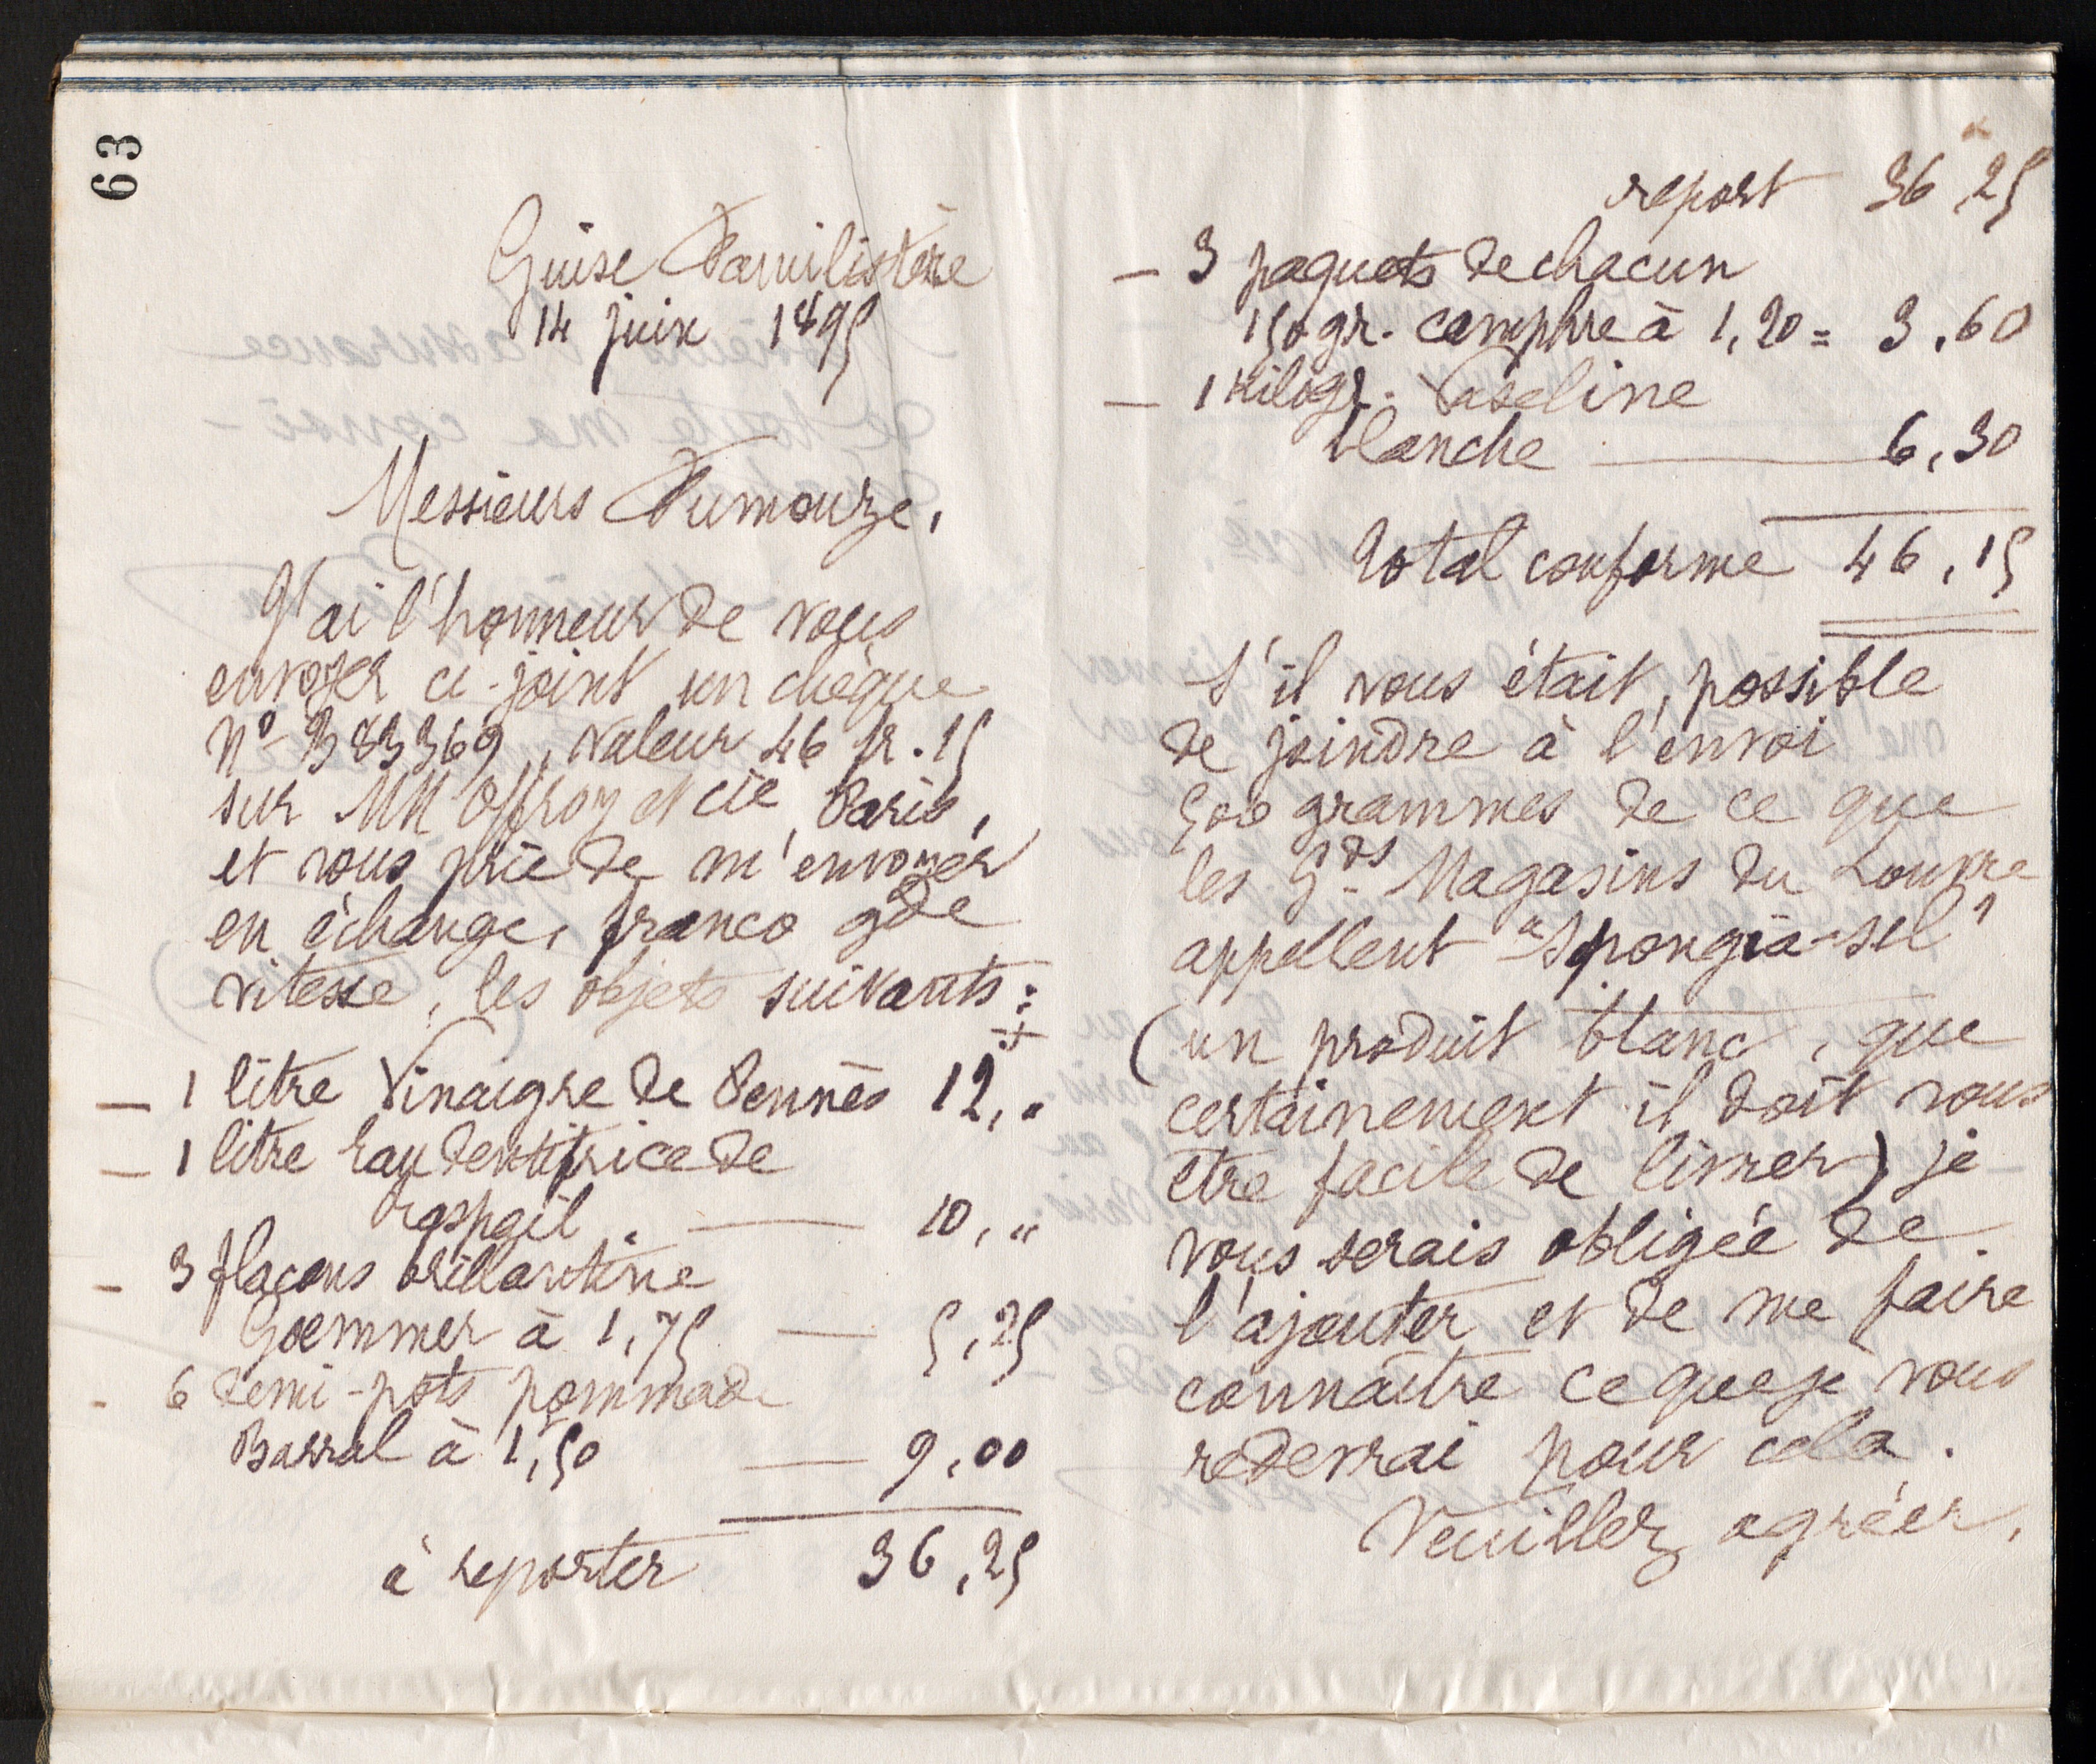 63
Guise Familistère
14 juin 1895
Messieurs Fumouze,
J'ai l'honneur de vous
envoyer ci-joint un chèque
No 383369, valeur 46 fr. 15
sur MM Offroy et cie, Paris,
et vous prie de m'envoyer
en échange, franco gde
vitesse, les objets suivants :
— 1 litre Vinaigre de Pennès 12, "
— 1 litre Eau dentifrice de
Raspail. — 10, "
— 3 flacons brillantine
Goemmer à 1,75 — 5,25
- 6 demi-pots pommade
Barral à 1,50 — 9,00
à reporter 36,25
report 36,25
— 3 paquets de chacun
150 gr. camphre à 1,20 = 3,60
— 1 kilogr. Vaseline
blanche — 6,30
Total conforme 46,15
S'il vous était possible
de joindre à l'envoi
500 grammes de ce que
les Gds Magasins du Louvre
appellent "Spongia-sel"
(un produit blanc, que
certainement il doit vous
être facile de livrer) je
vous serais obligée de
l'ajouter et de me faire
connaître ce que je vous
redevrai pour cela.
Veuillez agréer,